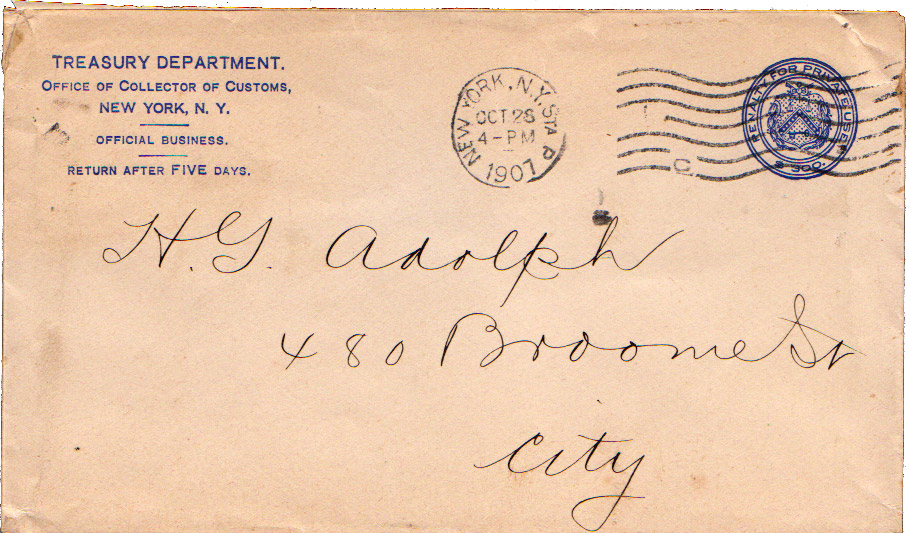 TREASURY DEPARTMENT.
OFFICE OF COLLECTOR OF CUSTOMS,
NEW YORK, N. Y.
OFFICIAL BUSINESS.
RETURN AFTER FIVE DAYS.
NEW YORK, N.Y. STA P
OCT 28
4-PM
1907
C
PENALTY FOR PRIVATE USE
$300.
H. G. Adolph
480 Broome St
City